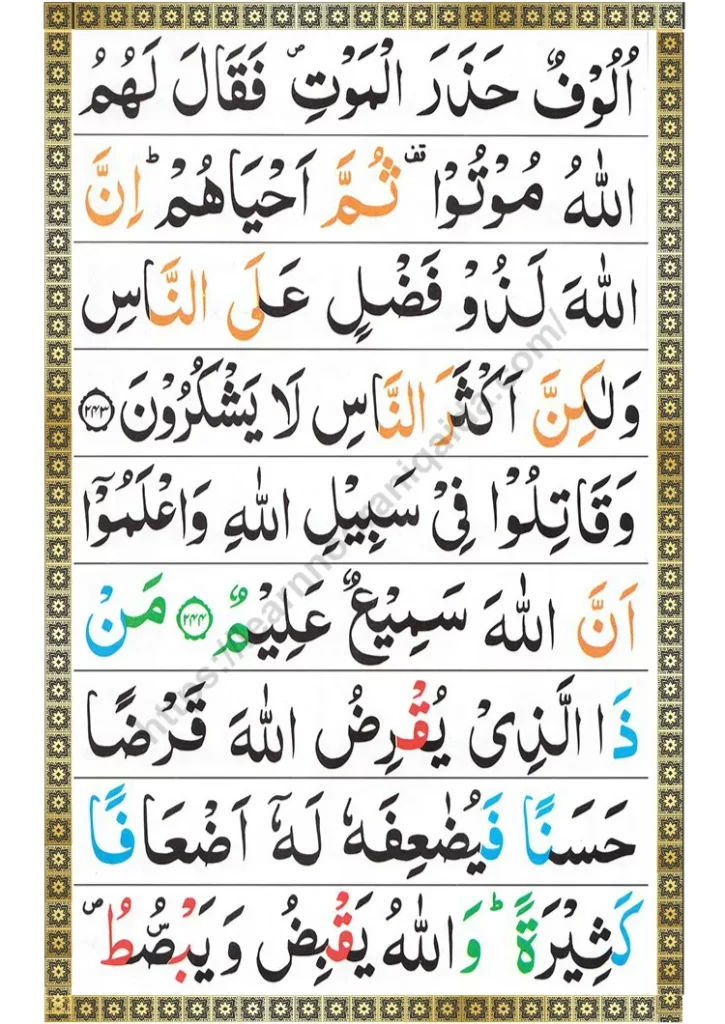 اُلُوْفٌ حَذَرَ الْمَوْتِ ۪ فَقَالَ لَهُمُ
اللّٰهُ مُوْتُوْا ۫ ثُمَّ اَحْيَاهُمْ ؕ اِنَّ
اللّٰهَ لَذُوْ فَضْلٍ عَلَى النَّاسِ
وَلٰكِنَّ اَكْثَرَ النَّاسِ لَا يَشْكُرُوْنَ ﴿۲۴۳﴾
وَقَاتِلُوْا فِىْ سَبِيْلِ اللّٰهِ وَاعْلَمُوْۤا
اَنَّ اللّٰهَ سَمِيْعٌ عَلِيْمٌ ﴿۲۴۴﴾ مَنْ
ذَا الَّذِىْ يُقْرِضُ اللّٰهَ قَرْضًا
حَسَنًا فَيُضٰعِفَهٗ لَهٗۤ اَضْعَافًا
كَثِيْرَةً ؕ وَاللّٰهُ يَقْبِضُ وَيَبْصُّطُ ۪
https://learnnooraniqaida.com/